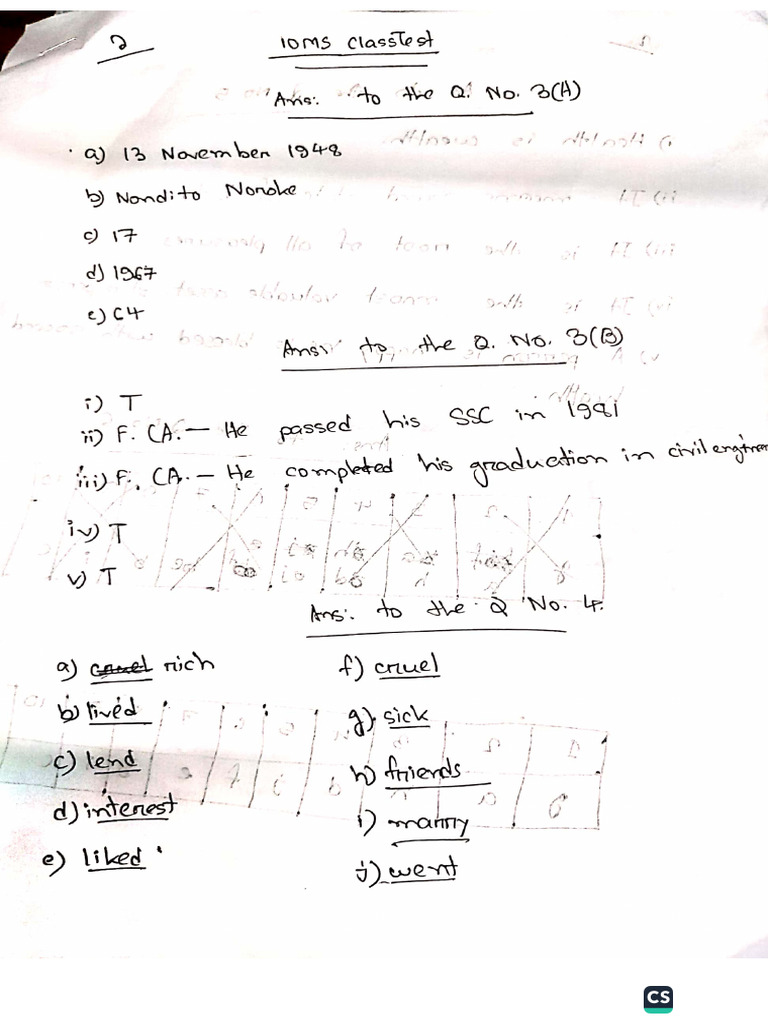 2
IOMS ClassTest
Ans: to the Q. No. 3(A)
a) 13 November 1948
b) Nondito Noroke
c) 17
d) 1967
e) 64
Ans: to the Q. No. 3(B)
i) T
ii) F. CA.— He passed his SSC in 1981
iii) F. CA.— He completed his graduation in civil
iv) T
v) T
Ans: to the Q No. 4.
a) cruel rich
b) lived
c) lend
d) interest
e) liked
f) cruel
g) sick
h) friends
i) marry
j) went
CS